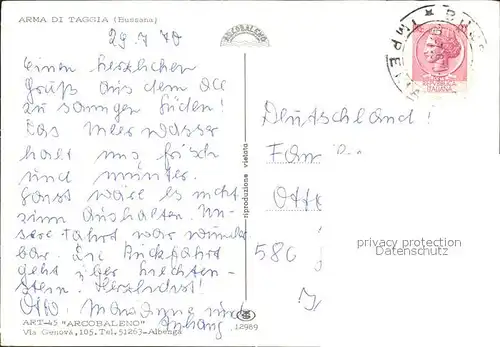 ARMA DI TAGGIA (Bussana)
29.7.70
Einen herzlichen
Gruß aus dem ach
so sonnigen Süden!
Das Meerwasser
hält uns frisch
und munter.
Sonst wäre es nicht
zum Aushalten. Un-
sere Fahrt war wunder
bar. Die Rückfahrt
geht über Liechten-
stein. Herzlichst!
Otto, Marianne und
Anhang
ART-45 "ARCOBALENO"
Via Genova, 105. Tel. 51263-Albenga
12989
riproduzione vietata
ARCOBALENO
REPUBBLICA
ITALIANA
Deutschland!
Fam
Otto
586
privacy protection
Datenschutz